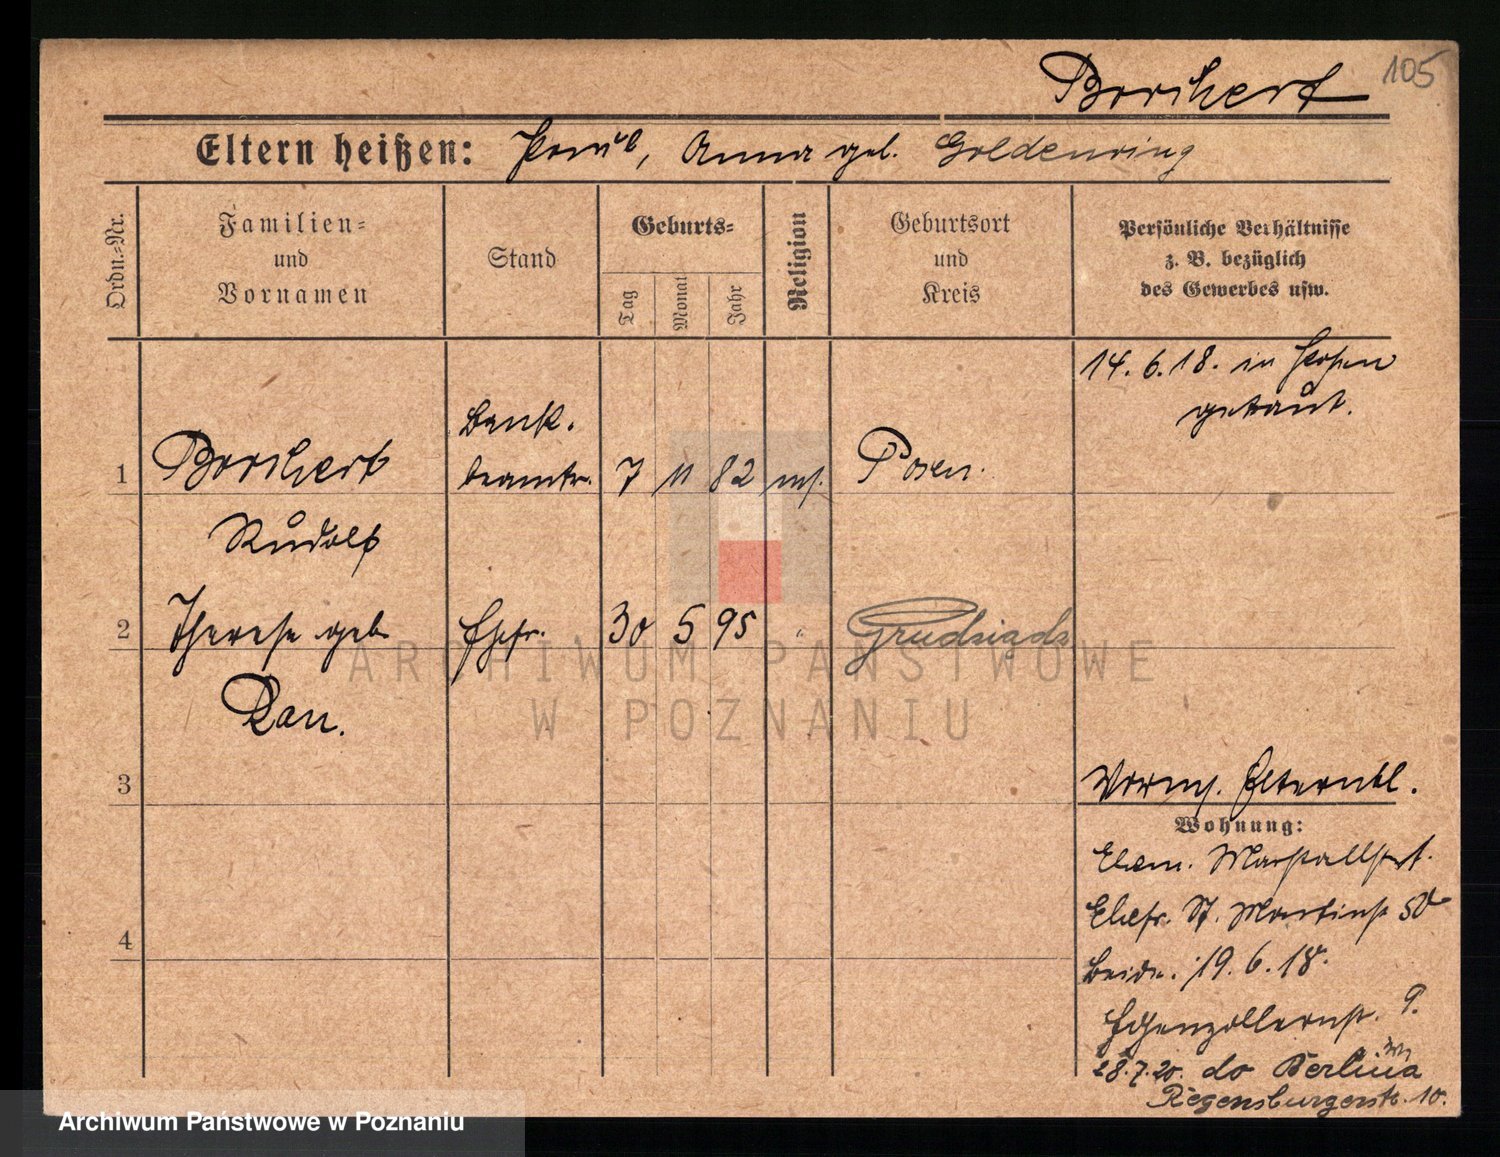 105
Borchert
Eltern heißen: Paul, Anna geb. Goldenring
Ordn.-Nr.
Familien-
und
Vornamen
Stand
Geburts-
Tag
Monat
Jahr
Religion
Geburtsort
und
Kreis
Persönliche Verhältnisse
z. B. bezüglich
des Gewerbes usw.
14. 6. 18. in Posen
getraut.
1 Borchert Bank.
beamter. 7 11 82 mos. Posen.
Rudolf
2 Therese geb. Ehefr. 30 5 95 " Grudziądz
Dan.
ARCHIWUM PAŃSTWOWE
W POZNANIU
3
4
Wohnung:
Ehem. Marstallstr.
Ehefr. St. Martinstr. 50
Beide. 19. 6. 18.
Hohenzollernstr. 9.
28.7.20. do Berlina
Regensburgerstr. 10.
Archiwum Państwowe w Poznaniu